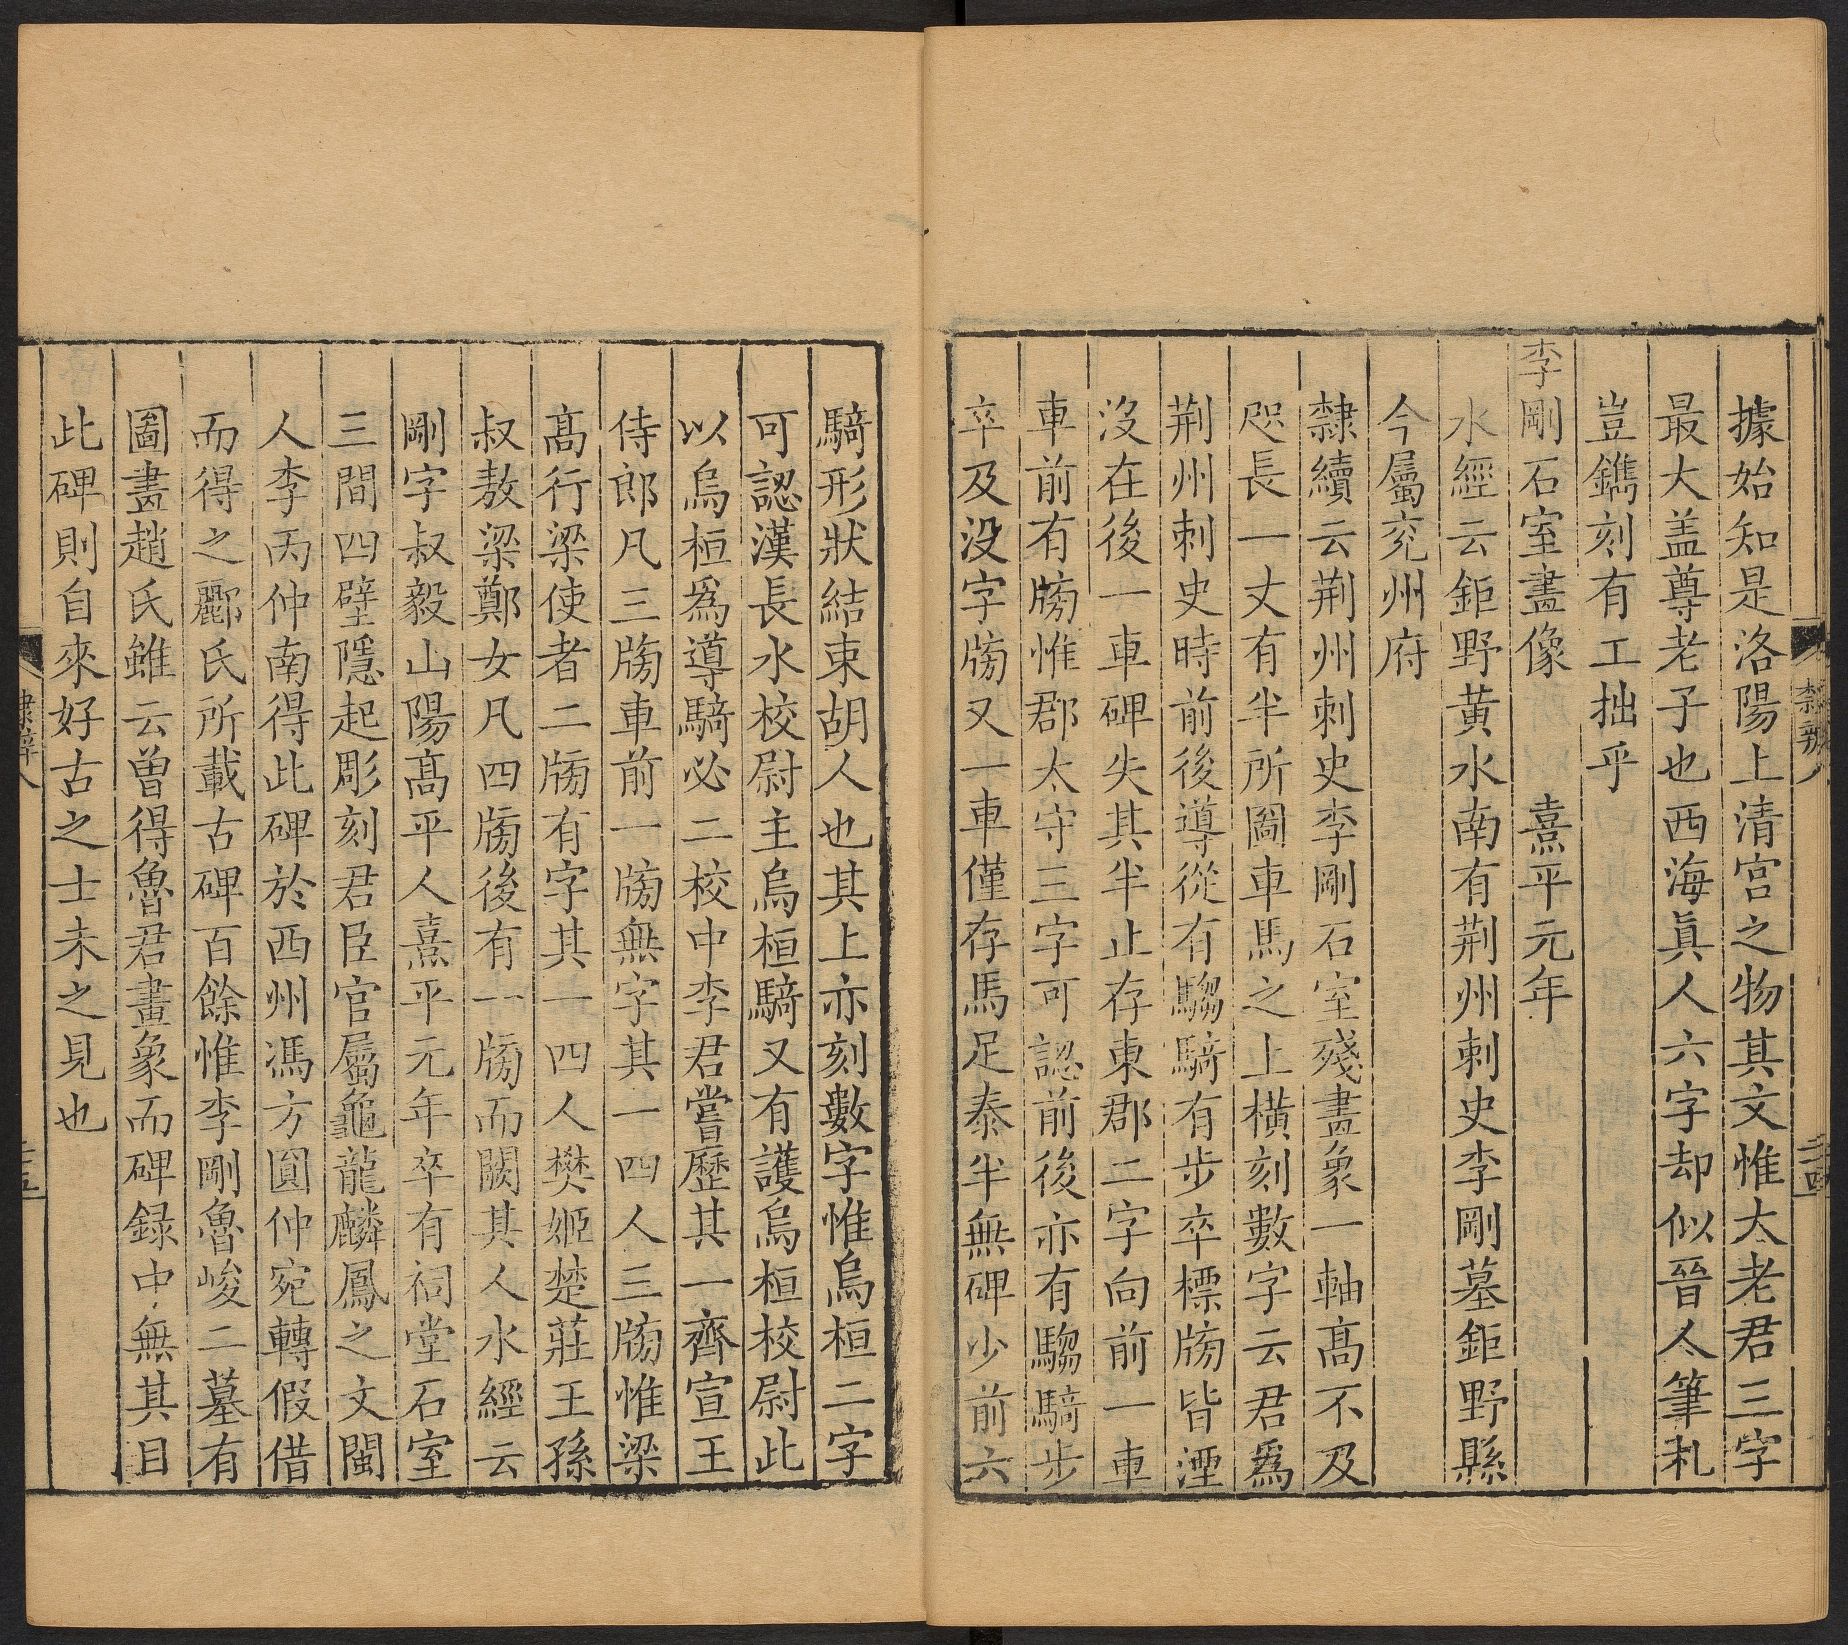 據始知是洛陽上清宫之物其文惟太老君三字
最大盖尊老子也西海眞人六字却似晉人筆札
豈鐫刻有工拙乎
李剛石室畫像 熹平元年
水經云鉅野黄水南有荆州刺史李剛墓鉅野縣
今屬兖州府
隸續云荆州刺史李剛石室殘畫象一軸髙不及
咫長一丈有半所圖車馬之上横刻數字云君爲
荆州刺史時前後導從有騶騎有步卒標牓皆湮
沒在後一車碑失其半止存東郡二字向前一車
車前有牓惟郡太守三字可認前後亦有騶騎步
卒及没字牓又一車僅存馬足泰半無碑少前六
隸辨八
二十四
騎形狀結束胡人也其上亦刻數字惟烏桓二字
可認漢長水校尉主烏桓騎又有護烏桓校尉此
以烏桓爲導騎必二校中李君嘗歷其一齊宣王
侍郎凡三牓車前一牓無字其一四人三牓惟梁
髙行梁使者二牓有字其一四人樊姬楚莊王孫
叔敖梁鄭女凡四牓後有一牓而闕其人水經云
剛字叔毅山陽髙平人熹平元年卒有祠堂石室
三間四壁隱起彫刻君臣官屬龜龍麟鳳之文閩
人李丙仲南得此碑於西州馮方圓仲宛轉假借
而得之酈氏所載古碑百餘惟李剛魯峻二墓有
圖畫趙氏雖云曾得魯君畫象而碑録中無其目
此碑則自來好古之士未之見也
隸辨八
二十五